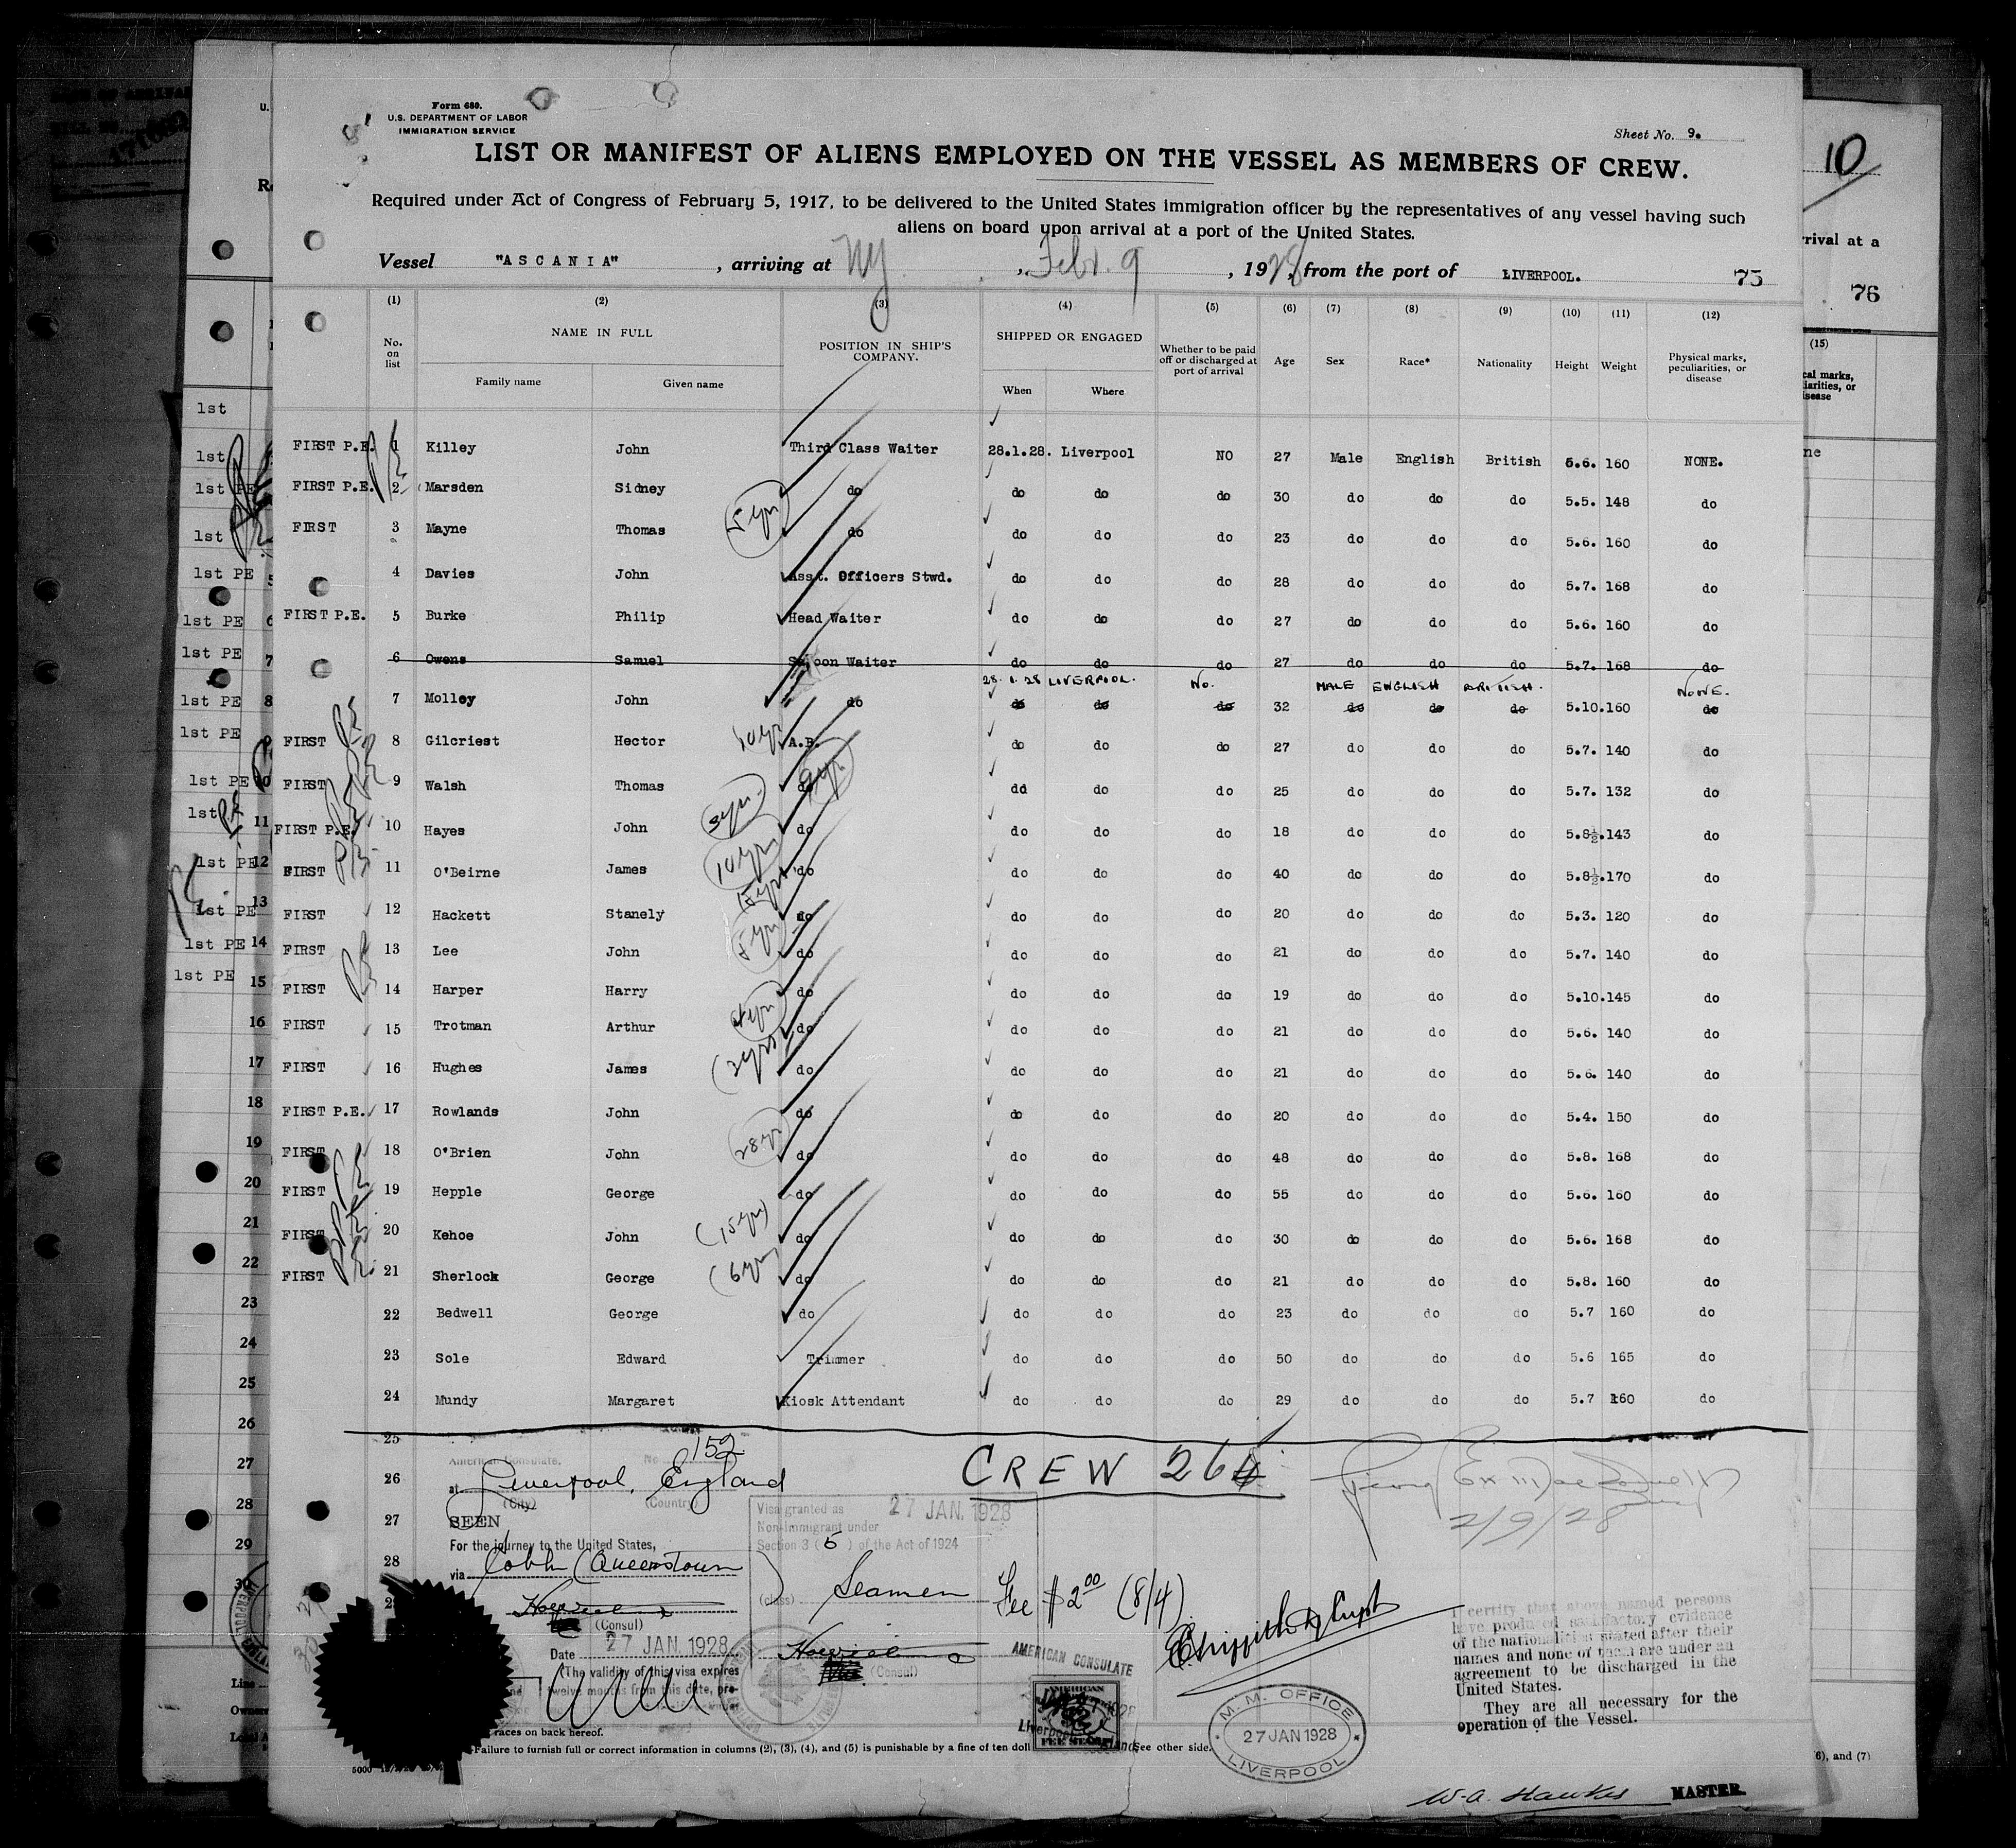 Form 680.
U.S. DEPARTMENT OF LABOR
IMMIGRATION SERVICE
Sheet No. 9.
LIST OR MANIFEST OF ALIENS EMPLOYED ON THE VESSEL AS MEMBERS OF CREW.
Required under Act of Congress of February 5, 1917, to be delivered to the United States immigration officer by the representatives of any vessel having such
aliens on board upon arrival at a port of the United States.
Vessel "ASCANIA", arriving at NY, Febr. 9, 1928, from the port of LIVERPOOL. 75
(1) (2) (3) (4) (5) (6) (7) (8) (9) (10) (11) (12)
No. on list NAME IN FULL POSITION IN SHIP'S COMPANY. SHIPPED OR ENGAGED Whether to be paid off or discharged at port of arrival Age Sex Race* Nationality Height Weight Physical marks, peculiarities, or disease
Family name Given name When Where
FIRST P.E. 1 Killey John Third Class Waiter 28.1.28. Liverpool NO 27 Male English British 5.6. 160 NONE.
FIRST P.E. 2 Marsden Sidney do do do do 30 do do do 5.5. 148 do
FIRST 3 Mayne Thomas 5 yrs do do do do 23 do do do 5.6. 160 do
4 Davies John Asst. Officers Stwd. do do do 28 do do do 5.7. 168 do
FIRST P.E. 5 Burke Philip Head Waiter do do do 27 do do do 5.6. 160 do
6 Owens Samuel Saloon Waiter do do do 27 do do do 5.7. 168 do
28.1.28 LIVERPOOL. No. MALE ENGLISH BRITISH. NONE.
7 Molloy John do do do do 32 do do do 5.10. 160 do
FIRST 8 Gilcriest Hector 10 yrs A.B. do do do 27 do do do 5.7. 140 do
FIRST 9 Walsh Thomas do dd do do 25 do do do 5.7. 132 do
FIRST P.E. 10 Hayes John 3 yrs do do do do 18 do do do 5.8½. 143 do
FIRST 11 O'Beirne James 10 yrs do do do do 40 do do do 5.8½. 170 do
FIRST 12 Hackett Stanely do do do do 20 do do do 5.3. 120 do
FIRST 13 Lee John 5 yrs do do do do 21 do do do 5.7. 140 do
FIRST 14 Harper Harry do do do do 19 do do do 5.10. 145 do
FIRST 15 Trotman Arthur 4 yrs do do do do 21 do do do 5.6. 140 do
FIRST 16 Hughes James 2 yrs do do do do 21 do do do 5.6. 140 do
FIRST P.E. 17 Rowlands John do do do do 20 do do do 5.4. 150 do
FIRST 18 O'Brien John 28 yrs do do do do 48 do do do 5.8. 168 do
FIRST 19 Hepple George do do do do 55 do do do 5.6. 160 do
FIRST 20 Kehoe John (15 yrs) do do do do 30 do do do 5.6. 168 do
FIRST 21 Sherlock George (6 yrs do do do do 21 do do do 5.8. 160 do
22 Bedwell George do do do do 23 do do do 5.7 160 do
23 Sole Edward Trimmer do do do 50 do do do 5.6 165 do
24 Mundy Margaret Kiosk Attendant do do do 29 do do do 5.7 160 do
25
American Consulate, No. 152
26 at Liverpool, England
(City) (Country)
CREW 26
2/9/28
27 SEEN
For the journey to the United States,
28 via Cobh (Queenstown)
(Consul)
Date 27 JAN. 1928
(The validity of this visa expires
twelve months from this date, pro-
Visa granted as 27 JAN. 1928
Non-Immigrant under
Section 3 (5) of the Act of 1924
(class) Seamen
(Consul)
Fee $2.00 (8/4)
AMERICAN CONSULATE
Liverpool
M.M. OFFICE
27 JAN 1928
LIVERPOOL
I certify that above named persons
have produced satisfactory evidence
of the nationalities stated after their
names and none of them are under an
agreement to be discharged in the
United States.
They are all necessary for the
operation of the Vessel.
races on back hereof.
Failure to furnish full or correct information in columns (2), (3), (4), and (5) is punishable by a fine of ten doll
See other side.
5000
W.A. Hawkes MASTER.
10
rrival at a
76
(15)
cal marks,
iarities, or
sease
ne
6), and (7)
1st
1st
1st PE
1st
1st PE
1st PE 6
1st PE 7
1st PE 8
1st PE 9
1st PE 10
1st P.E. 11
1st PE 12
1st PE 13
1st PE 14
1st PE 15
16
17
18
19
20
21
22
23
24
25
26
27
28
29
30
Line
Owners